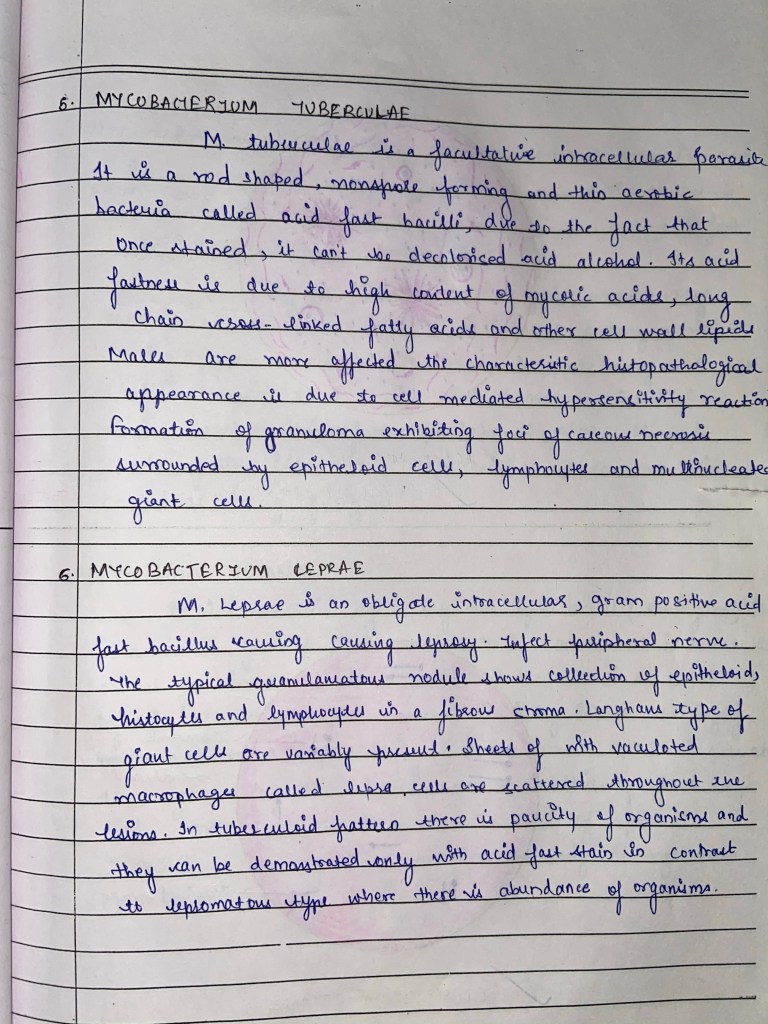 5. MYCOBACTERIUM TUBERCULAE
M. tuberculae is a facultative intracellular parasite
It is a rod shaped, nonspore forming and thin aerobic
bacteria called acid fast bacilli, due to the fact that
once stained, it can't be decolorised acid alcohol. Its acid
fastness is due to high content of mycolic acids, long
chain cross-linked fatty acids and other cell wall lipids
Males are more affected the characteristic histopathological
appearance is due to cell mediated hypersensitivity reaction
formation of granuloma exhibiting foci of caseous necrosis
surrounded by epitheloid cells, lymphocytes and multinucleated
giant cells.
6. MYCOBACTERIUM LEPRAE
M. Leprae is an obligate intracellular, gram positive acid
fast bacillus causing causing leprosy. Infect peripheral nerve.
The typical granulamatous nodule shows collection of epitheloid,
histocytes and lymphocytes in a fibrous stroma. Langhans type of
giant cells are variably present. Sheets of with vaculated
macrophages called lepra cells are scattered throughout the
lesions. In tuberculoid pattern there is paucity of organisms and
they can be demonstrated only with acid fast stain in contrast
to lepromatous type where there is abundance of organisms.